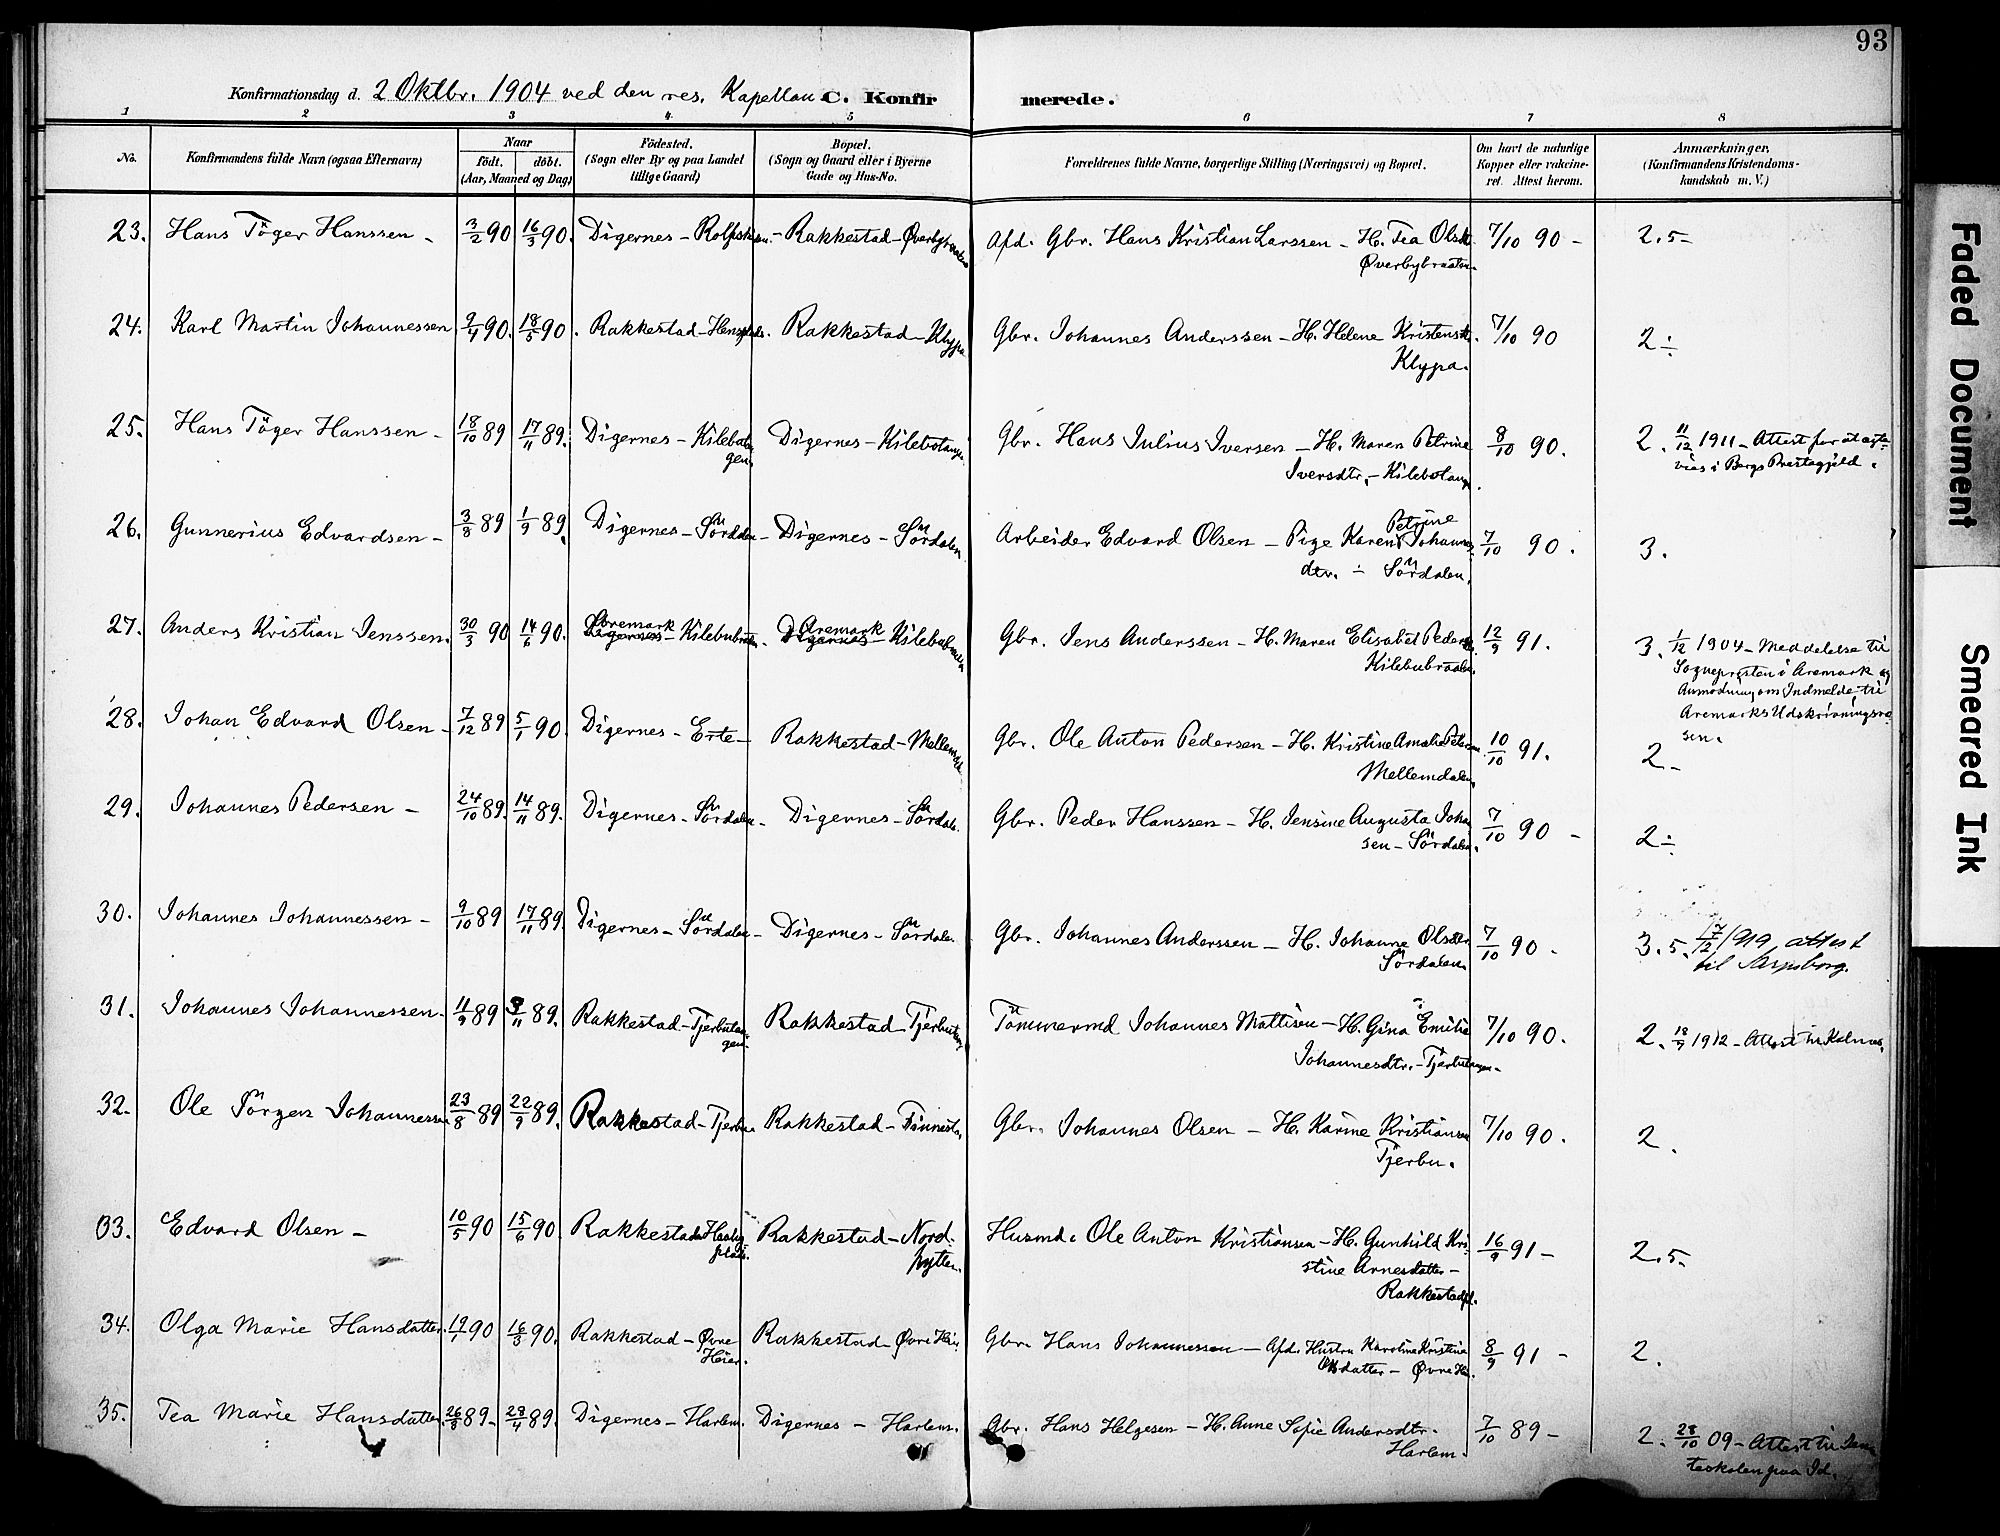 93
Konfirmationsdag d. 2 Oktbr. 1904 ved den res. Kapellan C. Konfirmerede.
1 2 3 4 5 6 7 8
No. Konfirmandens fulde Navn (ogsaa Efternavn) Naar født. døbt. (Aar, Maaned og Dag) Fødested. (Sogn eller By og paa Landet tillige Gaard) Bopæl. (Sogn og Gaard eller i Byerne Gade og Hus-No. Forældrenes fulde Navne, borgerlige Stilling (Næringsvei) og Bopæl. Om havt de naturlige Kopper eller vakcineret. Attest herom. Anmærkninger, (Konfirmandens Kristendomskundskab m. V.)
23. Hans Töger Hanssen - 3/2 90 16/3 90. Digernes - - Rakkestad - Afd. Gbr. Hans Kristian Larssen - H. Tea Olsdtr. 7/10 90 - 2.5-
Øverbybraaten.
24. Karl Martin Johannessen 9/4 90. 18/5 90. Rakkestad - Rakkestad - Klypa Gbr. Johannes Anderssen - H. Helene Kristensdtr. 7/10 90 2÷
Klypa.
25. Hans Töger Hanssen - 18/10 89 17/11 89. Digernes - Kilebotan Digernes - Kilebotangen Gbr. Hans Julius Iversen - H. Maren Petrine 8/10 90. 2. 11/12 1911 - Attest for at
gen. Iversdtr. - Kilebotang. vies i Bergs Prestegjeld.
26. Gunnerius Edvardsen - 3/8 89 1/9 89. Digernes - Sördalen - Digernes - Sördalen Arbeider Edvard Olsen - Pige Karen Petrine Johannes 7/10 90. 3.
dtr. ÷ Sördalen.
27. Anders Kristian Jenssen. 30/3 90 14/6 90. Aremark Digernes - Kilebubraaten. Aremark Digernes - Kilebubraaten Gbr. Jens Anderssen - H. Maren Elisabet Peders 12/9 91. 3. 1/12 1904 - Meddelelse til
Kilebubraaten. Sognepresten i Aremark og
Anmodning om Indmelde. til
Aremarks Udskrivningsvæ
sen.
28. Johan Edvard Olsen - 7/12 89 5/1 90. Digernes - Erte - Rakkestad - Mellemdal Gbr. Ole Anton Pedersen - H. Kristine Amalie 10/10 91. 2-
Mellemdalen.
29. Johannes Pedersen - 24/10 89. 14/11 89. Digernes - Sördalen - Digernes - Sördale. Gbr. Peder Hanssen - H. Jensine Augusta Johan 7/10 90 - 2÷
sen - Sördalen.
30. Johannes Johannessen - 9/10 89 17/11 89. Digernes - Sördalen - Digernes - Sördalen Gbr. Johannes Anderssen - H. Johanne Olsdtr. 7/10 90 - 3.5. 17/12 1919 attest
Sördalen. til Sarpsborg.
31. Johannes Johannessen. 11/9 89 3/11 89. Rakkestad - Tjerbutan Rakkestad - Tjerbutang Tömmermd Johannes Mattisen - H. Gina Emilie 7/10 90. 2. 18/9 1912 - Attest til
gen. Johannesdtr. - Tjerbutangen -
32. Ole Jörgen Johannessen 23/8 89 22/9 89. Rakkestad - Tjerbu. Rakkestad - Finnestad Gbr. Johannes Olsen - H. Karine Kristiansen 7/10 90. 2.
Tjerbu.
33. Edvard Olsen - 10/5 90 15/6 90. Rakkestad Rakkestad - Nord- Husmd. Ole Anton Kristiansen - H. Gunhild Kri 16/9 91 - 2.5-
plads. hytten. stine Arnesdatter -
34. Olga Marie Hansdatter. 19/1 90 16/3 90. Rakkestad - Øvre Rakkestad - Øvre Heier Gbr. Hans Johannessen - Afd. Hustru Karoline Kristine 8/9 91 - 2.
Heier. Olsdatter - Øvre Hei.
35. Tea Marie Hansdatter. 26/3 89 - 28/4 89. Digernes - Harlem. Digernes - Harlem. Gbr. Hans Helgesen - H. Anne Sofie Andersdtr. 7/10 89 - 2. 28/10 09 - Attest til
Harlem. paa Id.
Faded Document
Smeared Ink